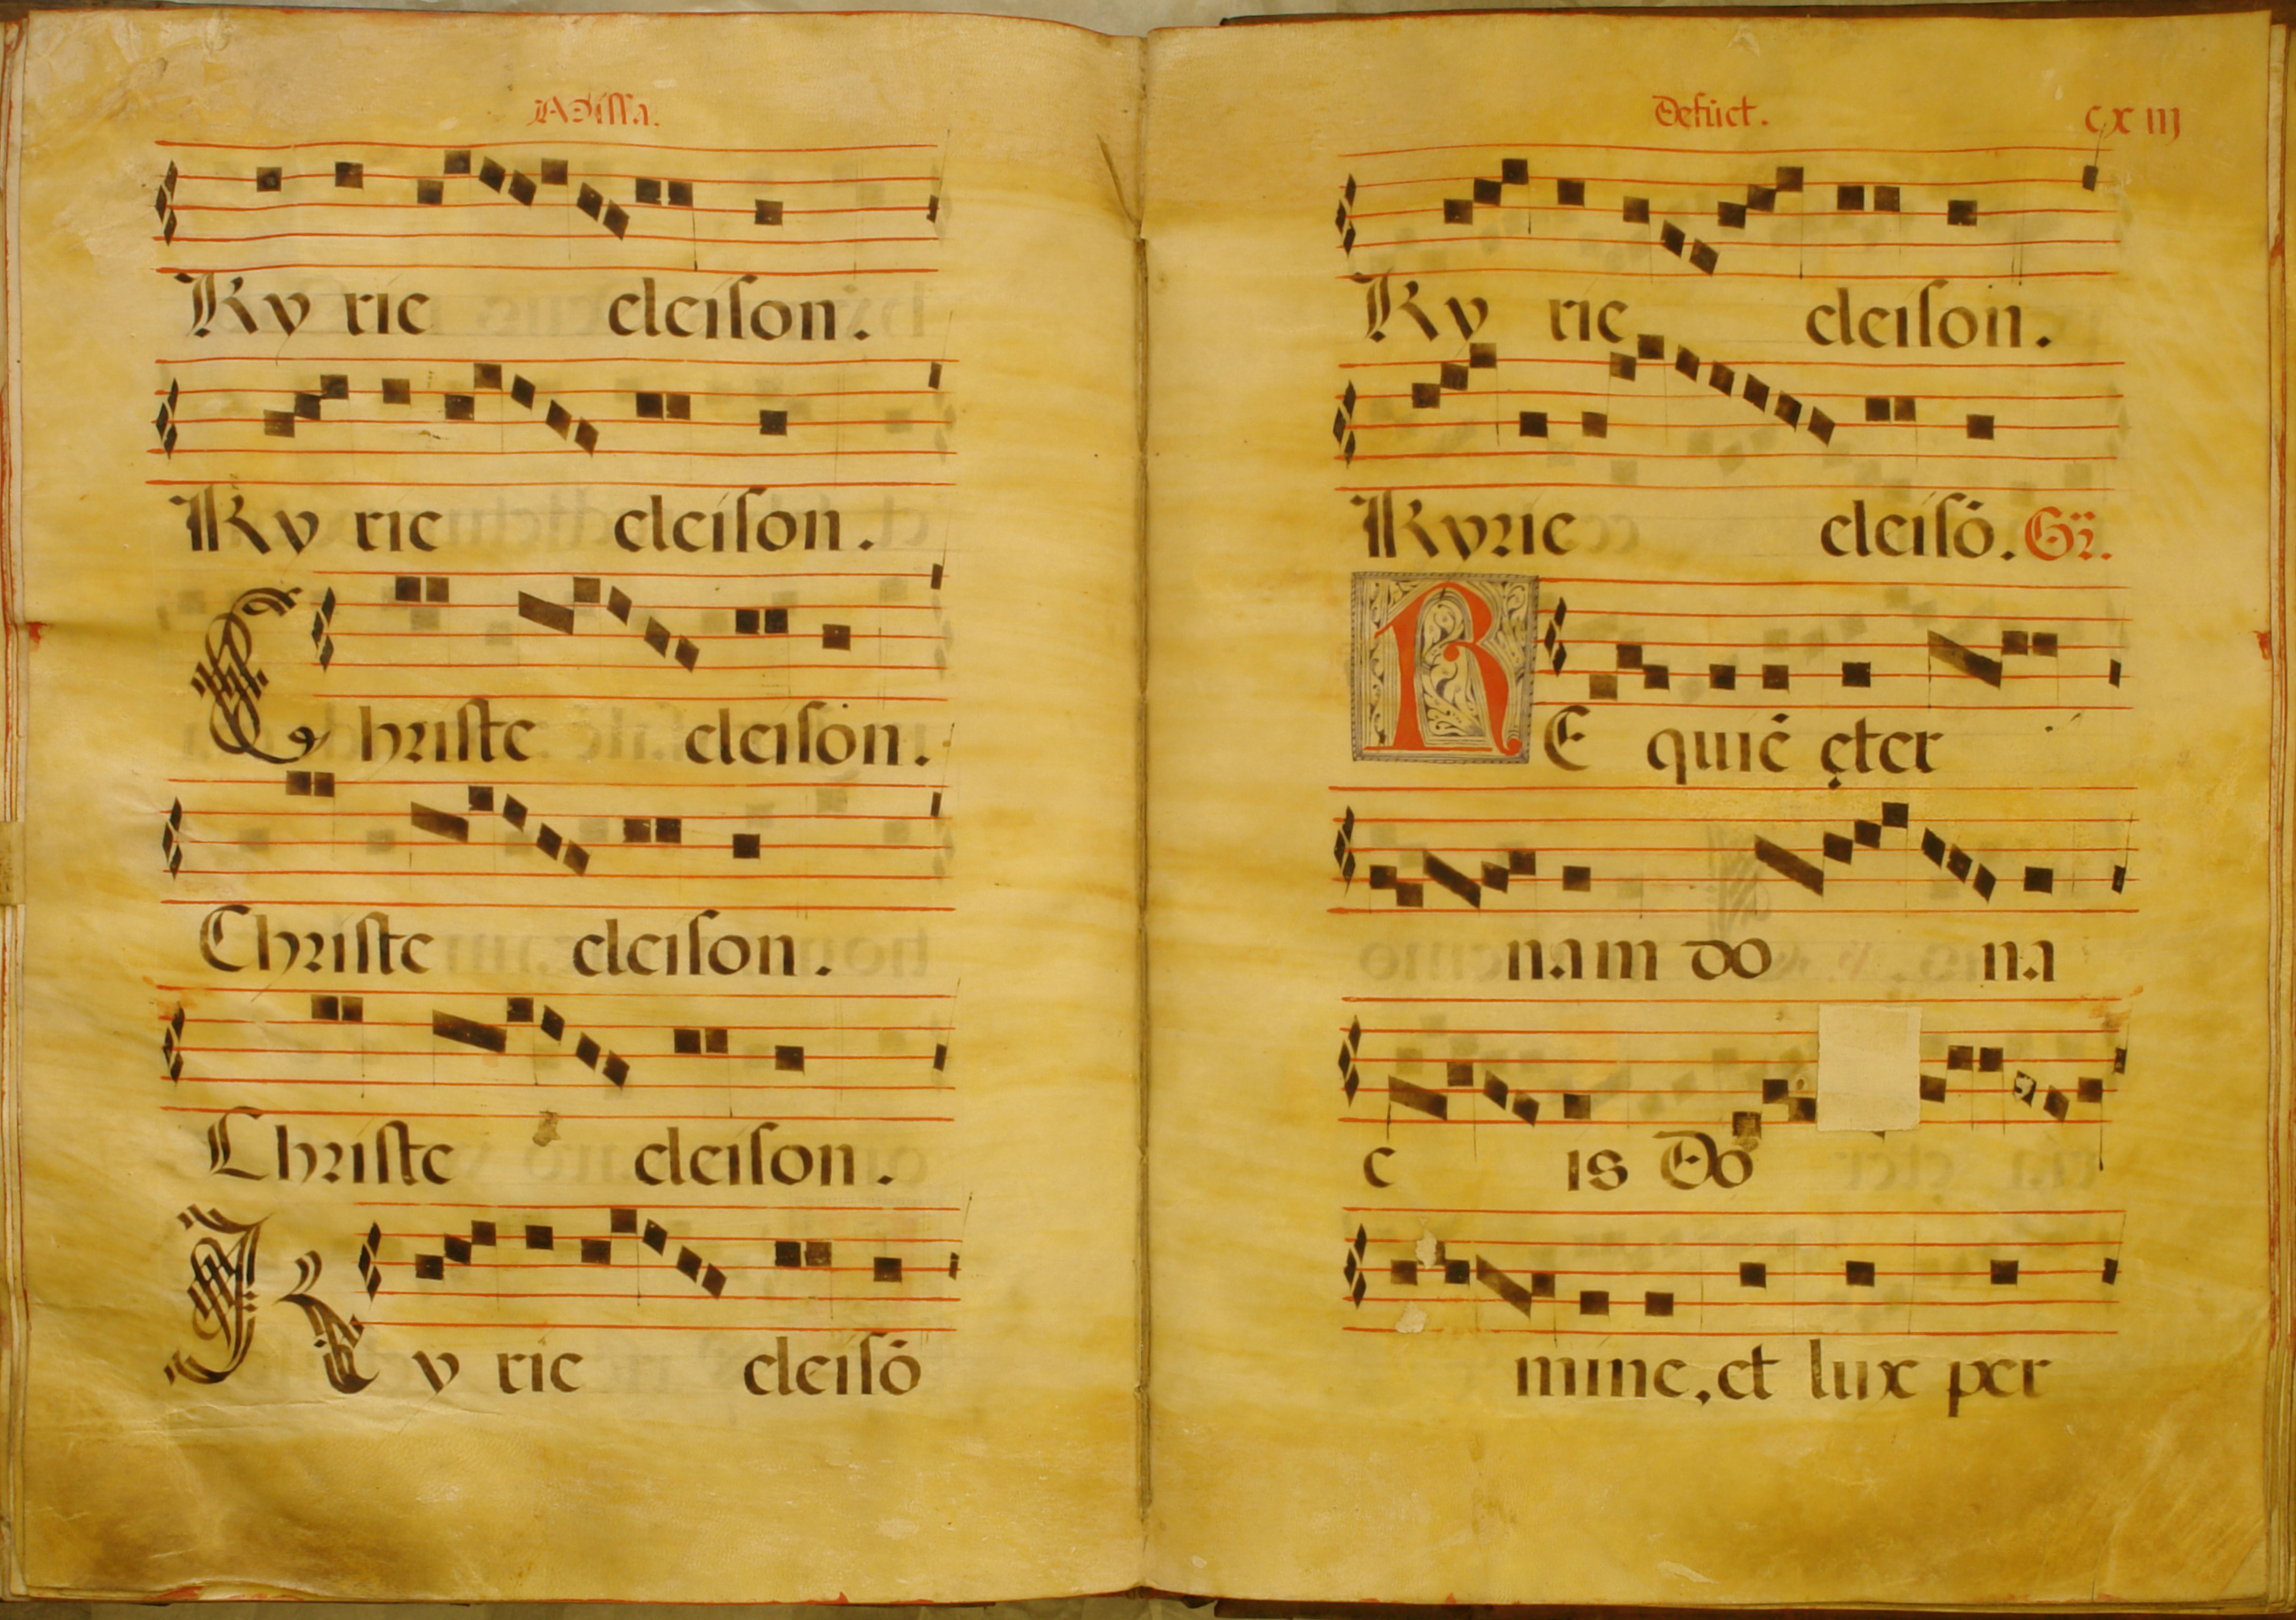 Missa.
Ky rie eleiſon.
Ky rie eleiſon.
Christe eleiſon.
Christe eleiſon.
Christe eleiſon.
Ky rie eleiſō
Defūct. cxiij
Ky rie eleiſon.
Kyrie eleiſō. Gr̄.
RE quiē ęter
nam do na
e is Do
mine, et lux per